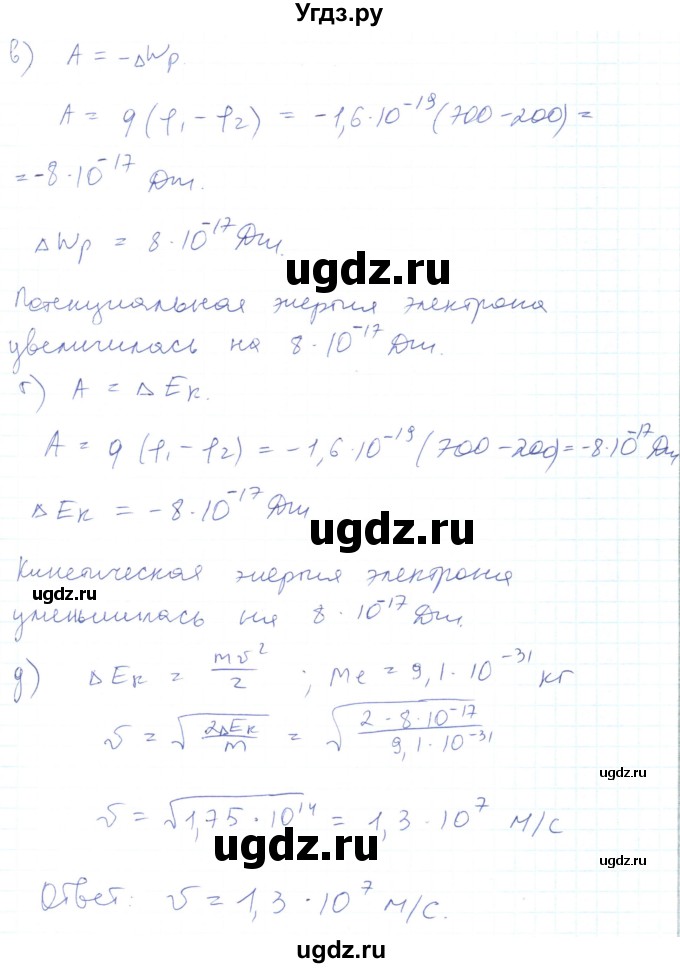 Угдз.ру
в) A = -ΔWp.
A = q(φ₁ - φ₂) = -1,6·10⁻¹⁹(700-200) =
= -8·10⁻¹⁷ Дж.
ΔWp = 8·10⁻¹⁷ Дж.
ugdz.ru
Потенциальная энергия электрона
увеличилась на 8·10⁻¹⁷ Дж.
г) A = ΔEк.
A = q(φ₁ - φ₂) = -1,6·10⁻¹⁹(700-200) = -8·10⁻¹⁷ Дж
ΔEк = -8·10⁻¹⁷ Дж
ugdz.ru
Кинетическая энергия электрона
ugdz.ru
уменьшилась на 8·10⁻¹⁷ Дж.
д) ΔEк = mv²/2 ; me = 9,1·10⁻³¹ кг
v = √(2ΔEк/m) = √(2·8·10⁻¹⁷/9,1·10⁻³¹)
ugdz.ru
v = √(1,75·10¹⁴) = 1,3·10⁷ м/с
ugdz.ru
ugdz.ru
Ответ: v = 1,3·10⁷ м/с.
ugdz.ru